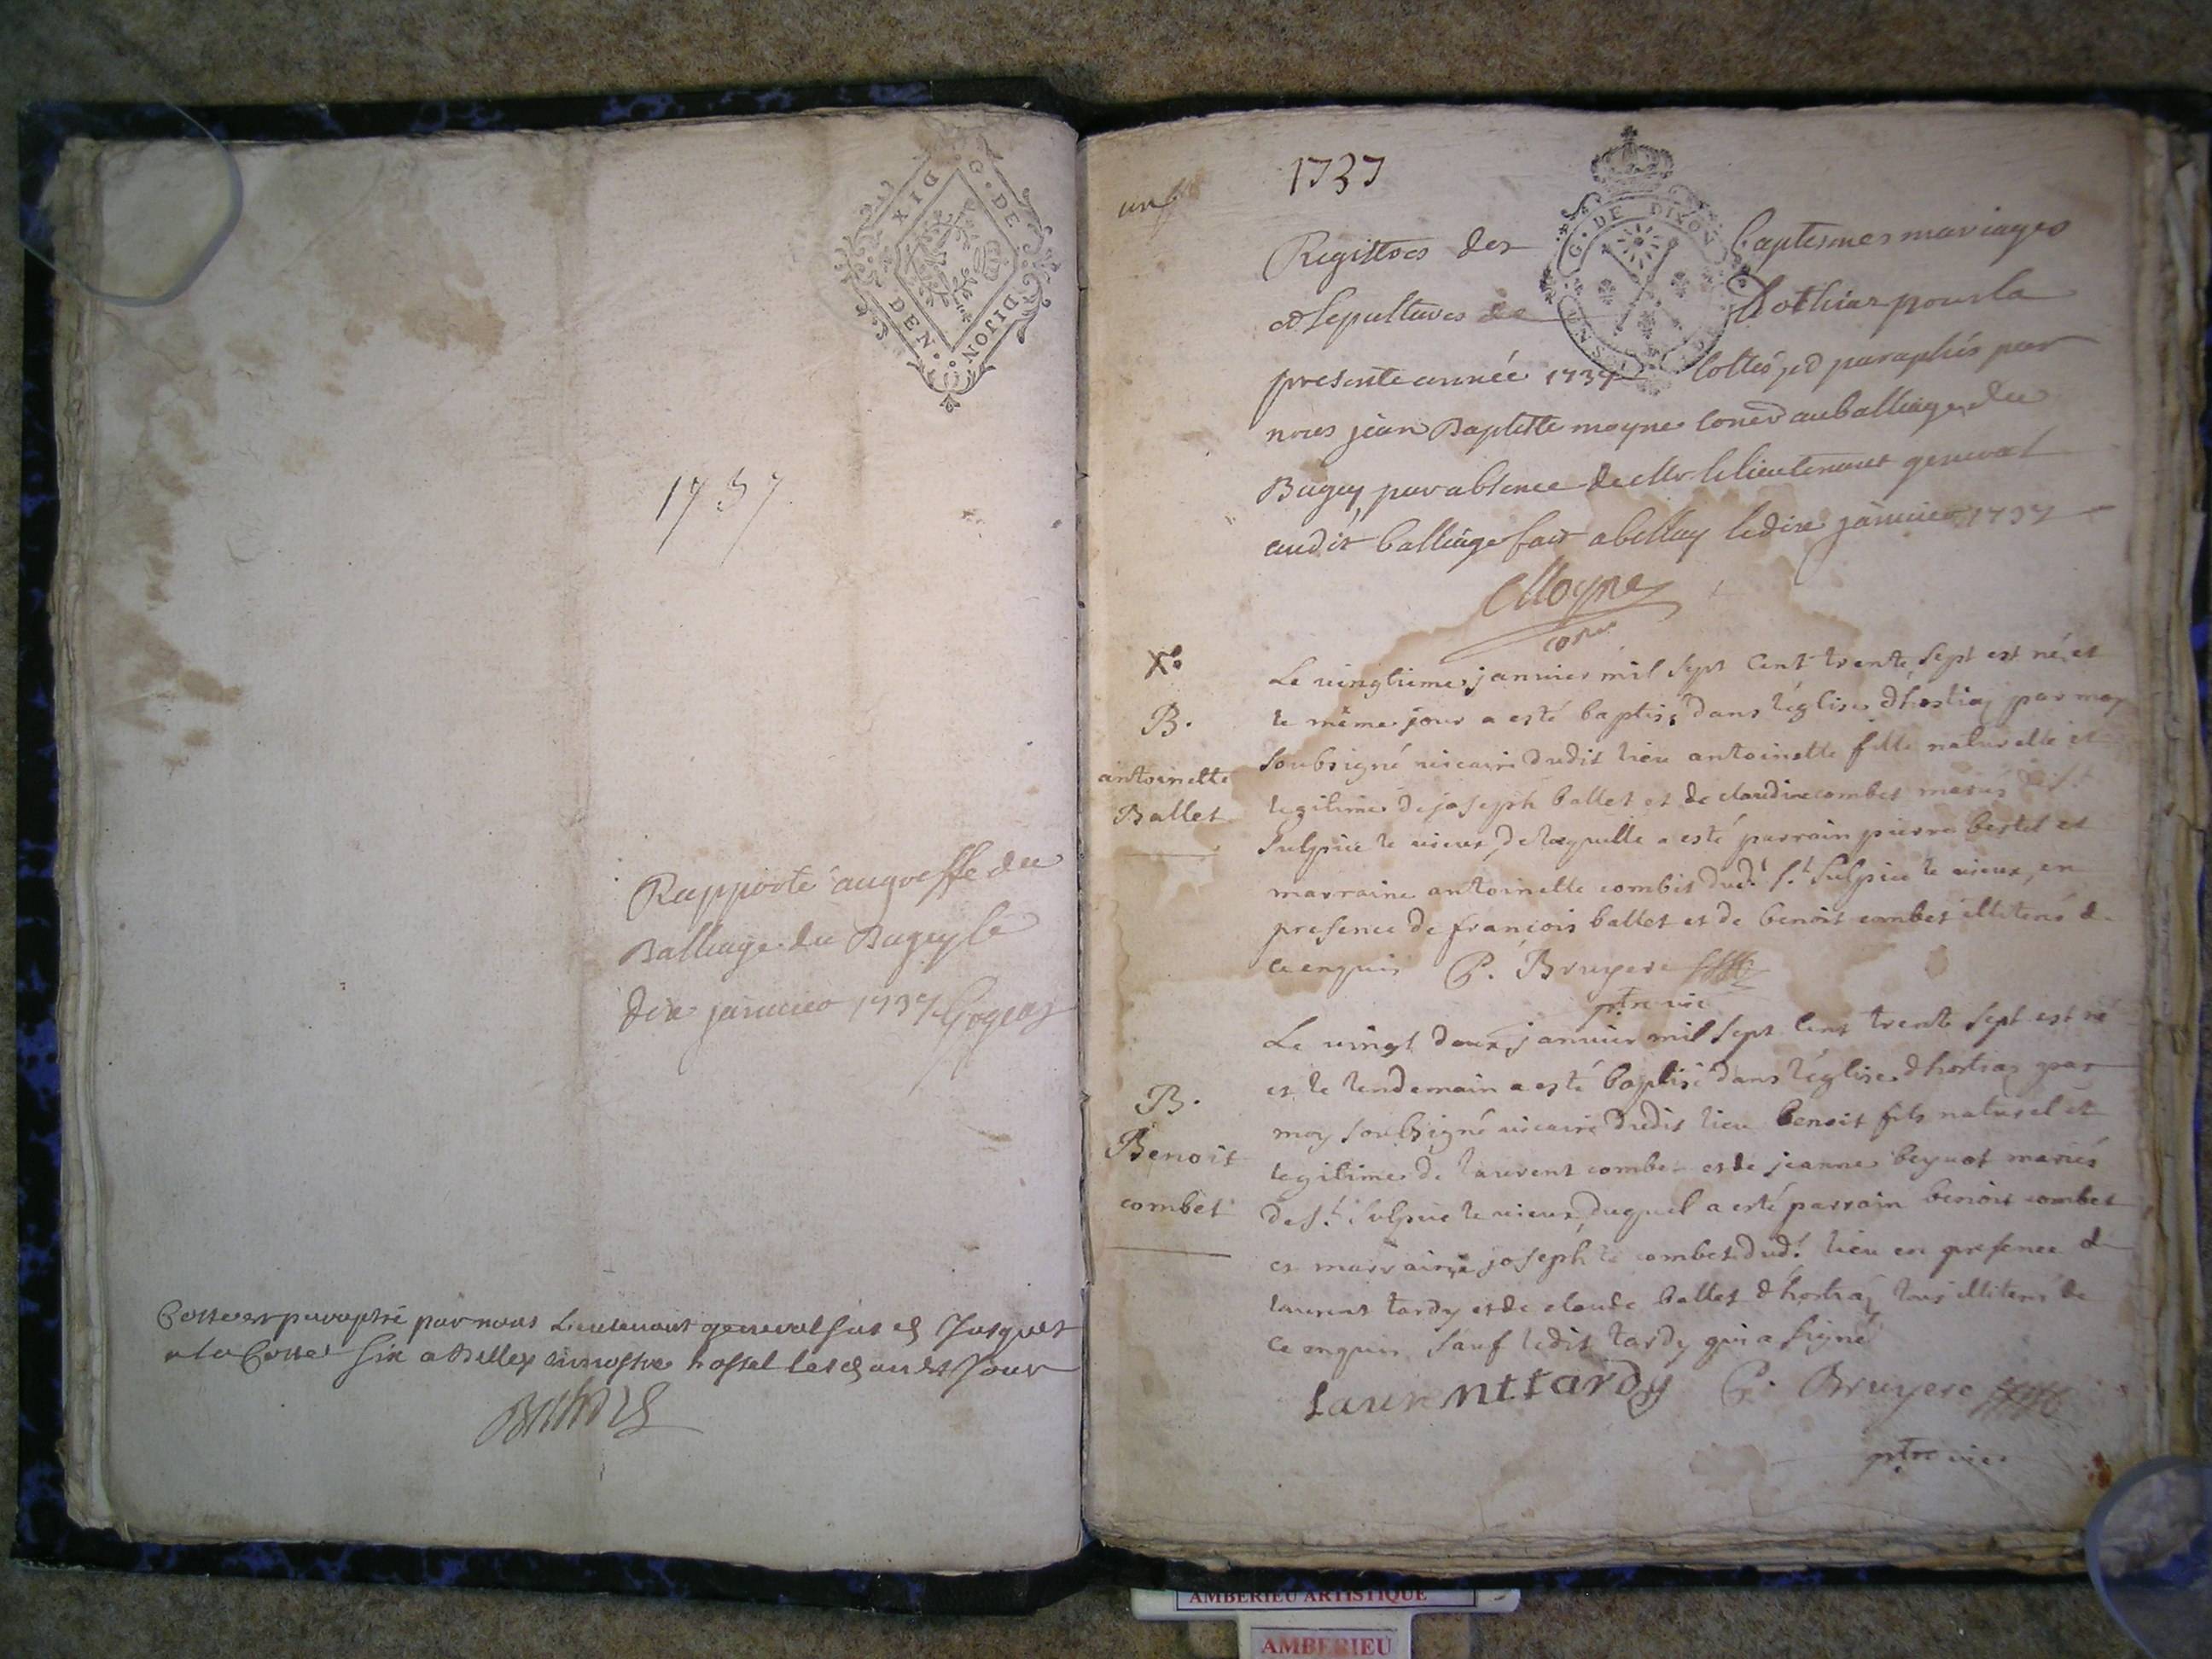 G. DE DIJON
DIX DEN.
1737
Rapporté au greffe du
Balliage du Bugey le
dix janvier 1737
par nous Lieutenant general
1737
G. DE DIJON
Registres des baptesmes mariages
et sepultures de hothias pour la
presente année 1737 Cottés et paraphés par
nous jean Baptiste moyne coner au balliage du
Bugey par absence de Mr le lieutenant general
audit balliage fait a bellay le dix janvier 1737
Moyne
coner
B.
antoinette
Ballet
Le vingtieme janvier mil sept cent trente sept est né et
le même jour a esté baptisé dans l'église d'hostiaz par moy
soubsigné vicaire dudit lieu antoinette fille naturelle et
legitime de joseph ballet et de claudine combet mariés de st
Sulpice le vieux, de laquelle a esté parrain pierre bertet et
marraine antoinette combet dudt st Sulpice le vieux, en
presence de francois ballet et de benoit combet illiterés de
ce enquis P. Bruyere
ptre vic
B.
Benoit
combet
Le vingt deux janvier mil sept cent trente sept est né
et le lendemain a esté baptisé dans l'église d'hostiaz par
moy soubsigné vicaire dudit lieu benoit fils naturel et
legitime de laurent combet et de jeanne mariés
de st Sulpice le vieux, duquel a esté parrain benoit combet
et marraine josephte combet dudt lieu en presence de
laurent tardy et de claude ballet d'hostiaz tous illiterés de
ce enquis sauf ledit tardy qui a signé
Laurent tardy P. Bruyere
ptre vic
AMBERIEU ARTISTIQUE
AMBERIEU